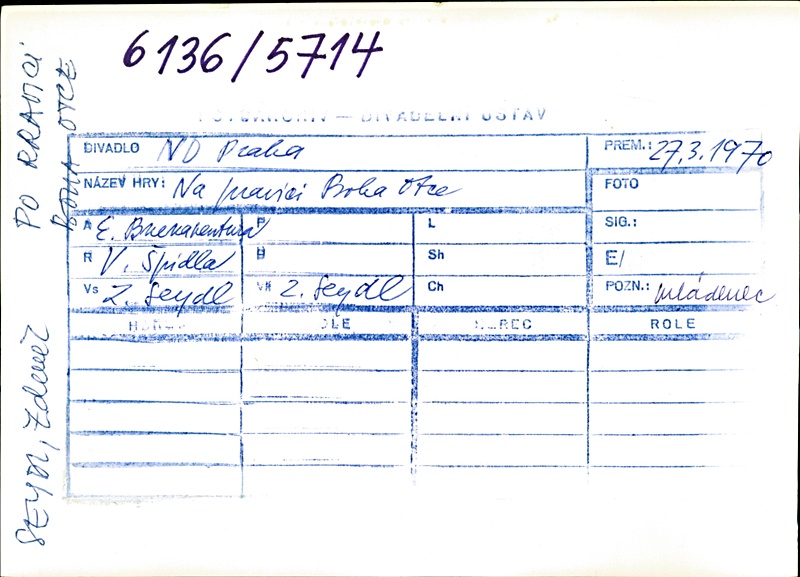 6136/5714
PO PRAVICI
BOHA OTCE
SEYDL, Zdeněk
FOTOARCHIV — DIVADELNÍ ÚSTAV
DIVADLO ND Praha
PREM.: 27.3.1970
NÁZEV HRY: Na pravici Boha Otce
FOTO
A E. Buenaventura P L
SIG.:
R V. Špidla H Sh
E/
Vs Z. Seydl Vk Z. Seydl Ch
POZN.: mládenec
HEREC ROLE HEREC ROLE